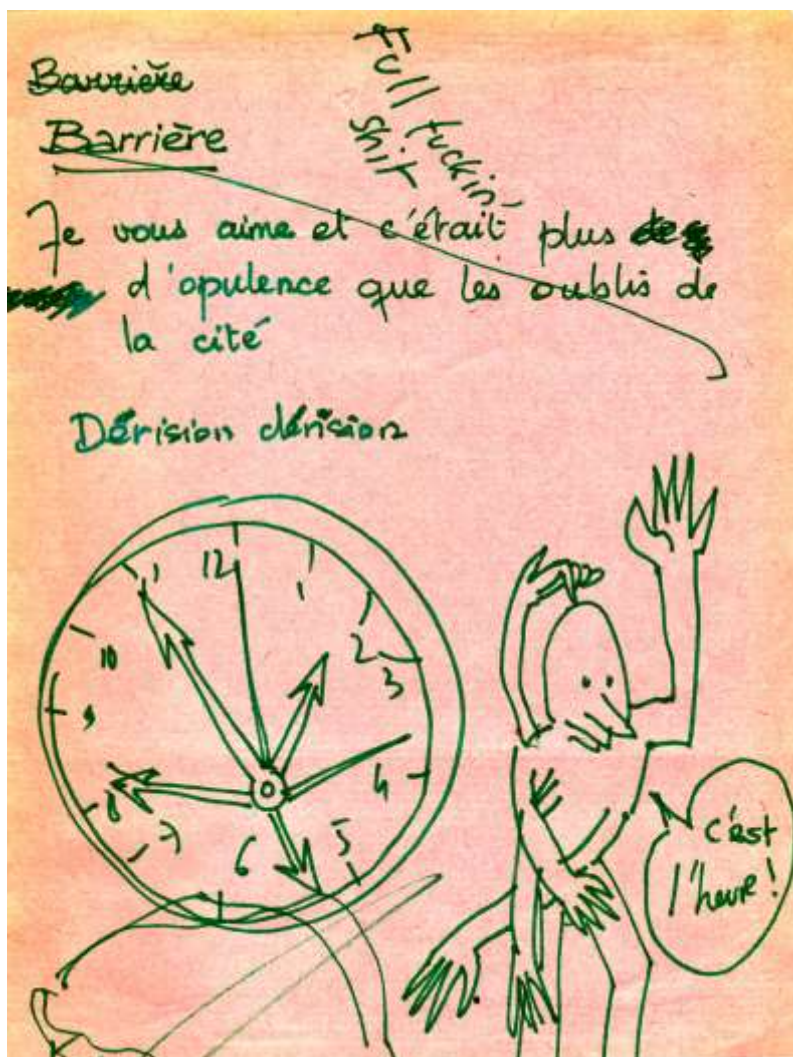 Barrière
Barrière
Full fuckin'
shit
Je vous aime et c'était plus
d'opulence que les oublis de
la cité
Dérision dérision
12
11
1
10
2
3
9
4
8
7
6
5
c'est
l'heure !